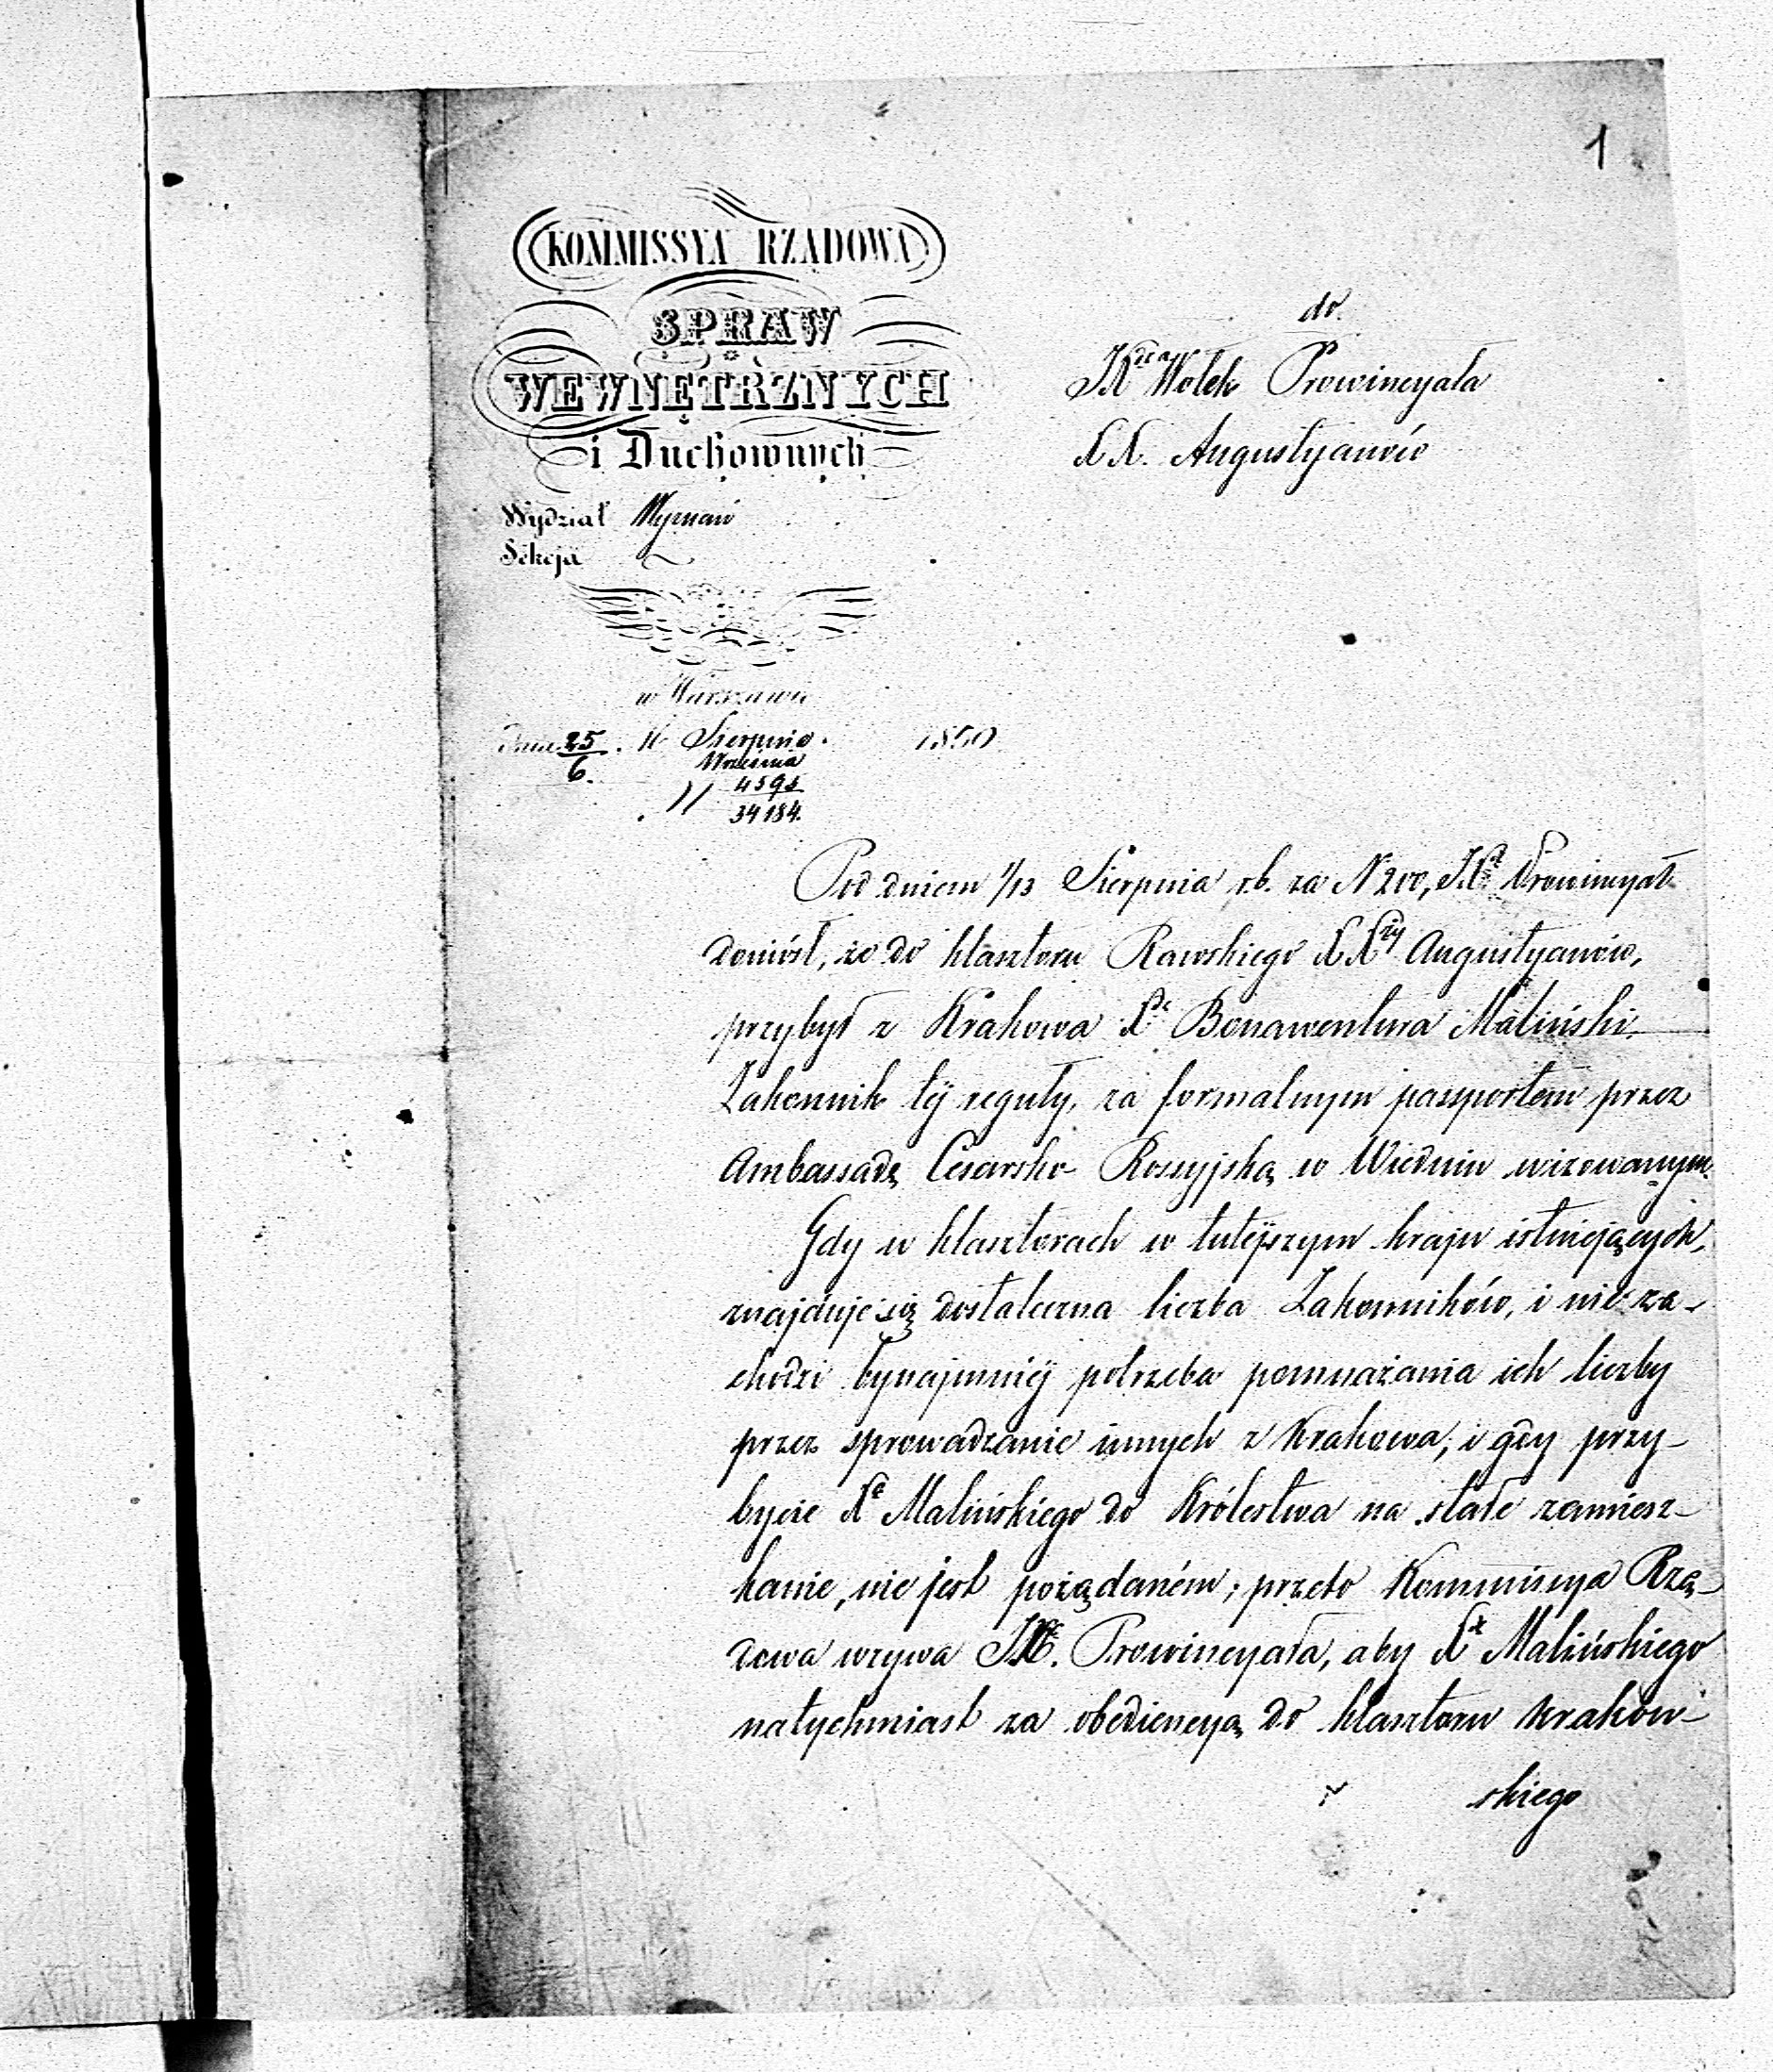 1
KOMMISSYA RZĄDOWA
SPRAW
WEWNĘTRZNYCH
i Duchownych
Wydział Wyznań
Sekcja
w Warszawie
dnia 25/6. Sierpnia. Września 1850
N 4595/34184.
do
JXdza Wołek Prowincyała
XX. Augustyanów
Pod dniem 1/13 Sierpnia r.b. za N 200, JXdz Prowincyał
doniósł, że do klasztoru Rawskiego XXży Augustyanów,
przybył z Krakowa Xdz Bonawentura Maliński
Zakonnik téj reguły, za formalnym passportem przez
Ambassadę Cesarsko Rossyjską w Wiedniu wizowanym.
Gdy w klasztorach w tutéjszym kraju istniejących,
znajduje się dostateczna liczba Zakonników, i nie za-
chodzi bynajmniéj potrzeba pomnażania ich liczby
przez sprowadzanie innych z Krakowa, i gdy przy-
bycie Xa Malińskiego do Królestwa na stałe zamiesz-
kanie, nie jest pożądaném; przeto Kommissya Rzą-
dowa wzywa JX. Prowincyała, aby Xa Malińskiego
natychmiast za obediencyą do klasztoru Krakow-
skiego